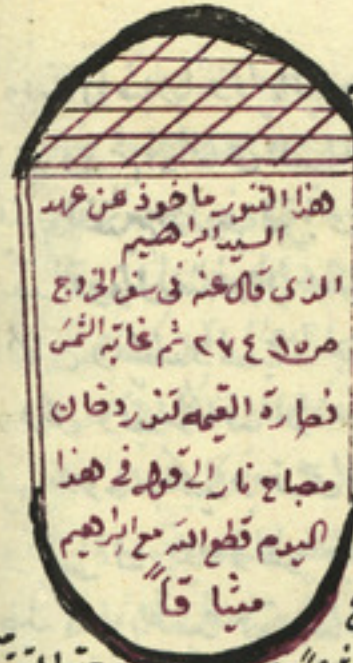 هذا التنور ماخوذ عن عهد
السيد ابراهيم
الذى قال عنه فى سفر الخروج
ص ١٥ ع ٢٧ ثم غابة الشمس
فصارة القيمه تنور دخان
مصباح نار الى قوله فى هذا
اليوم قطع الله مع ابراهيم
ميثاقاً